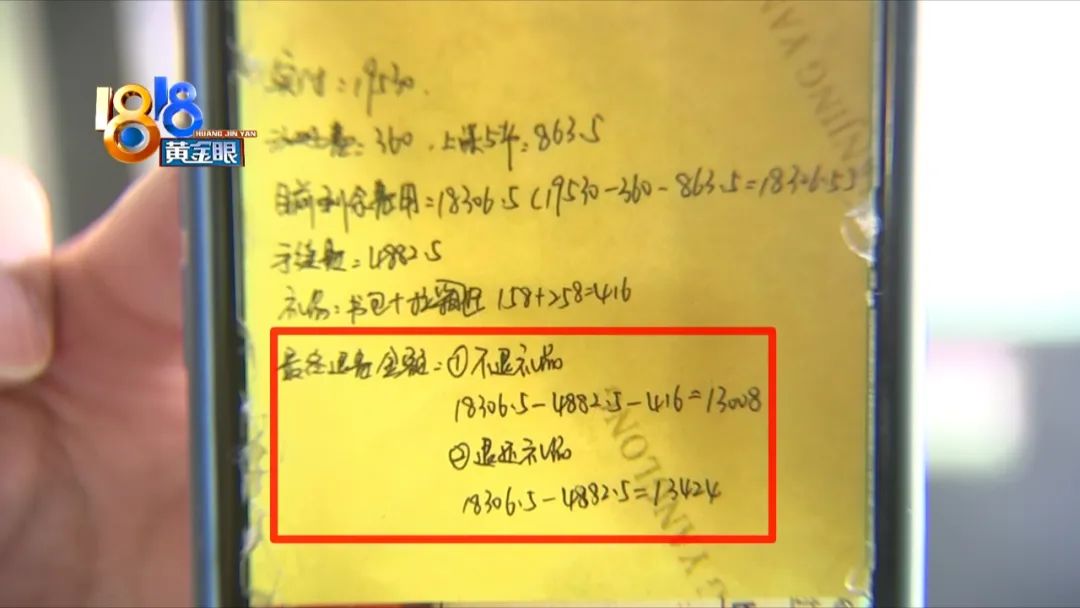 1818
HUANG JIN YAN
黄金眼
实付:19530.
360,上课5节:863.5
目前剩余费用=18306.5(19530-360-863.5=18306.5)
手续费=4882.5
礼品:书包+拉箱 158+258=416
最终退费金额:①不退礼品
18306.5-4882.5-416=13008
②退还礼品
18306.5-4882.5=13424
NJING YAN
G YANLON